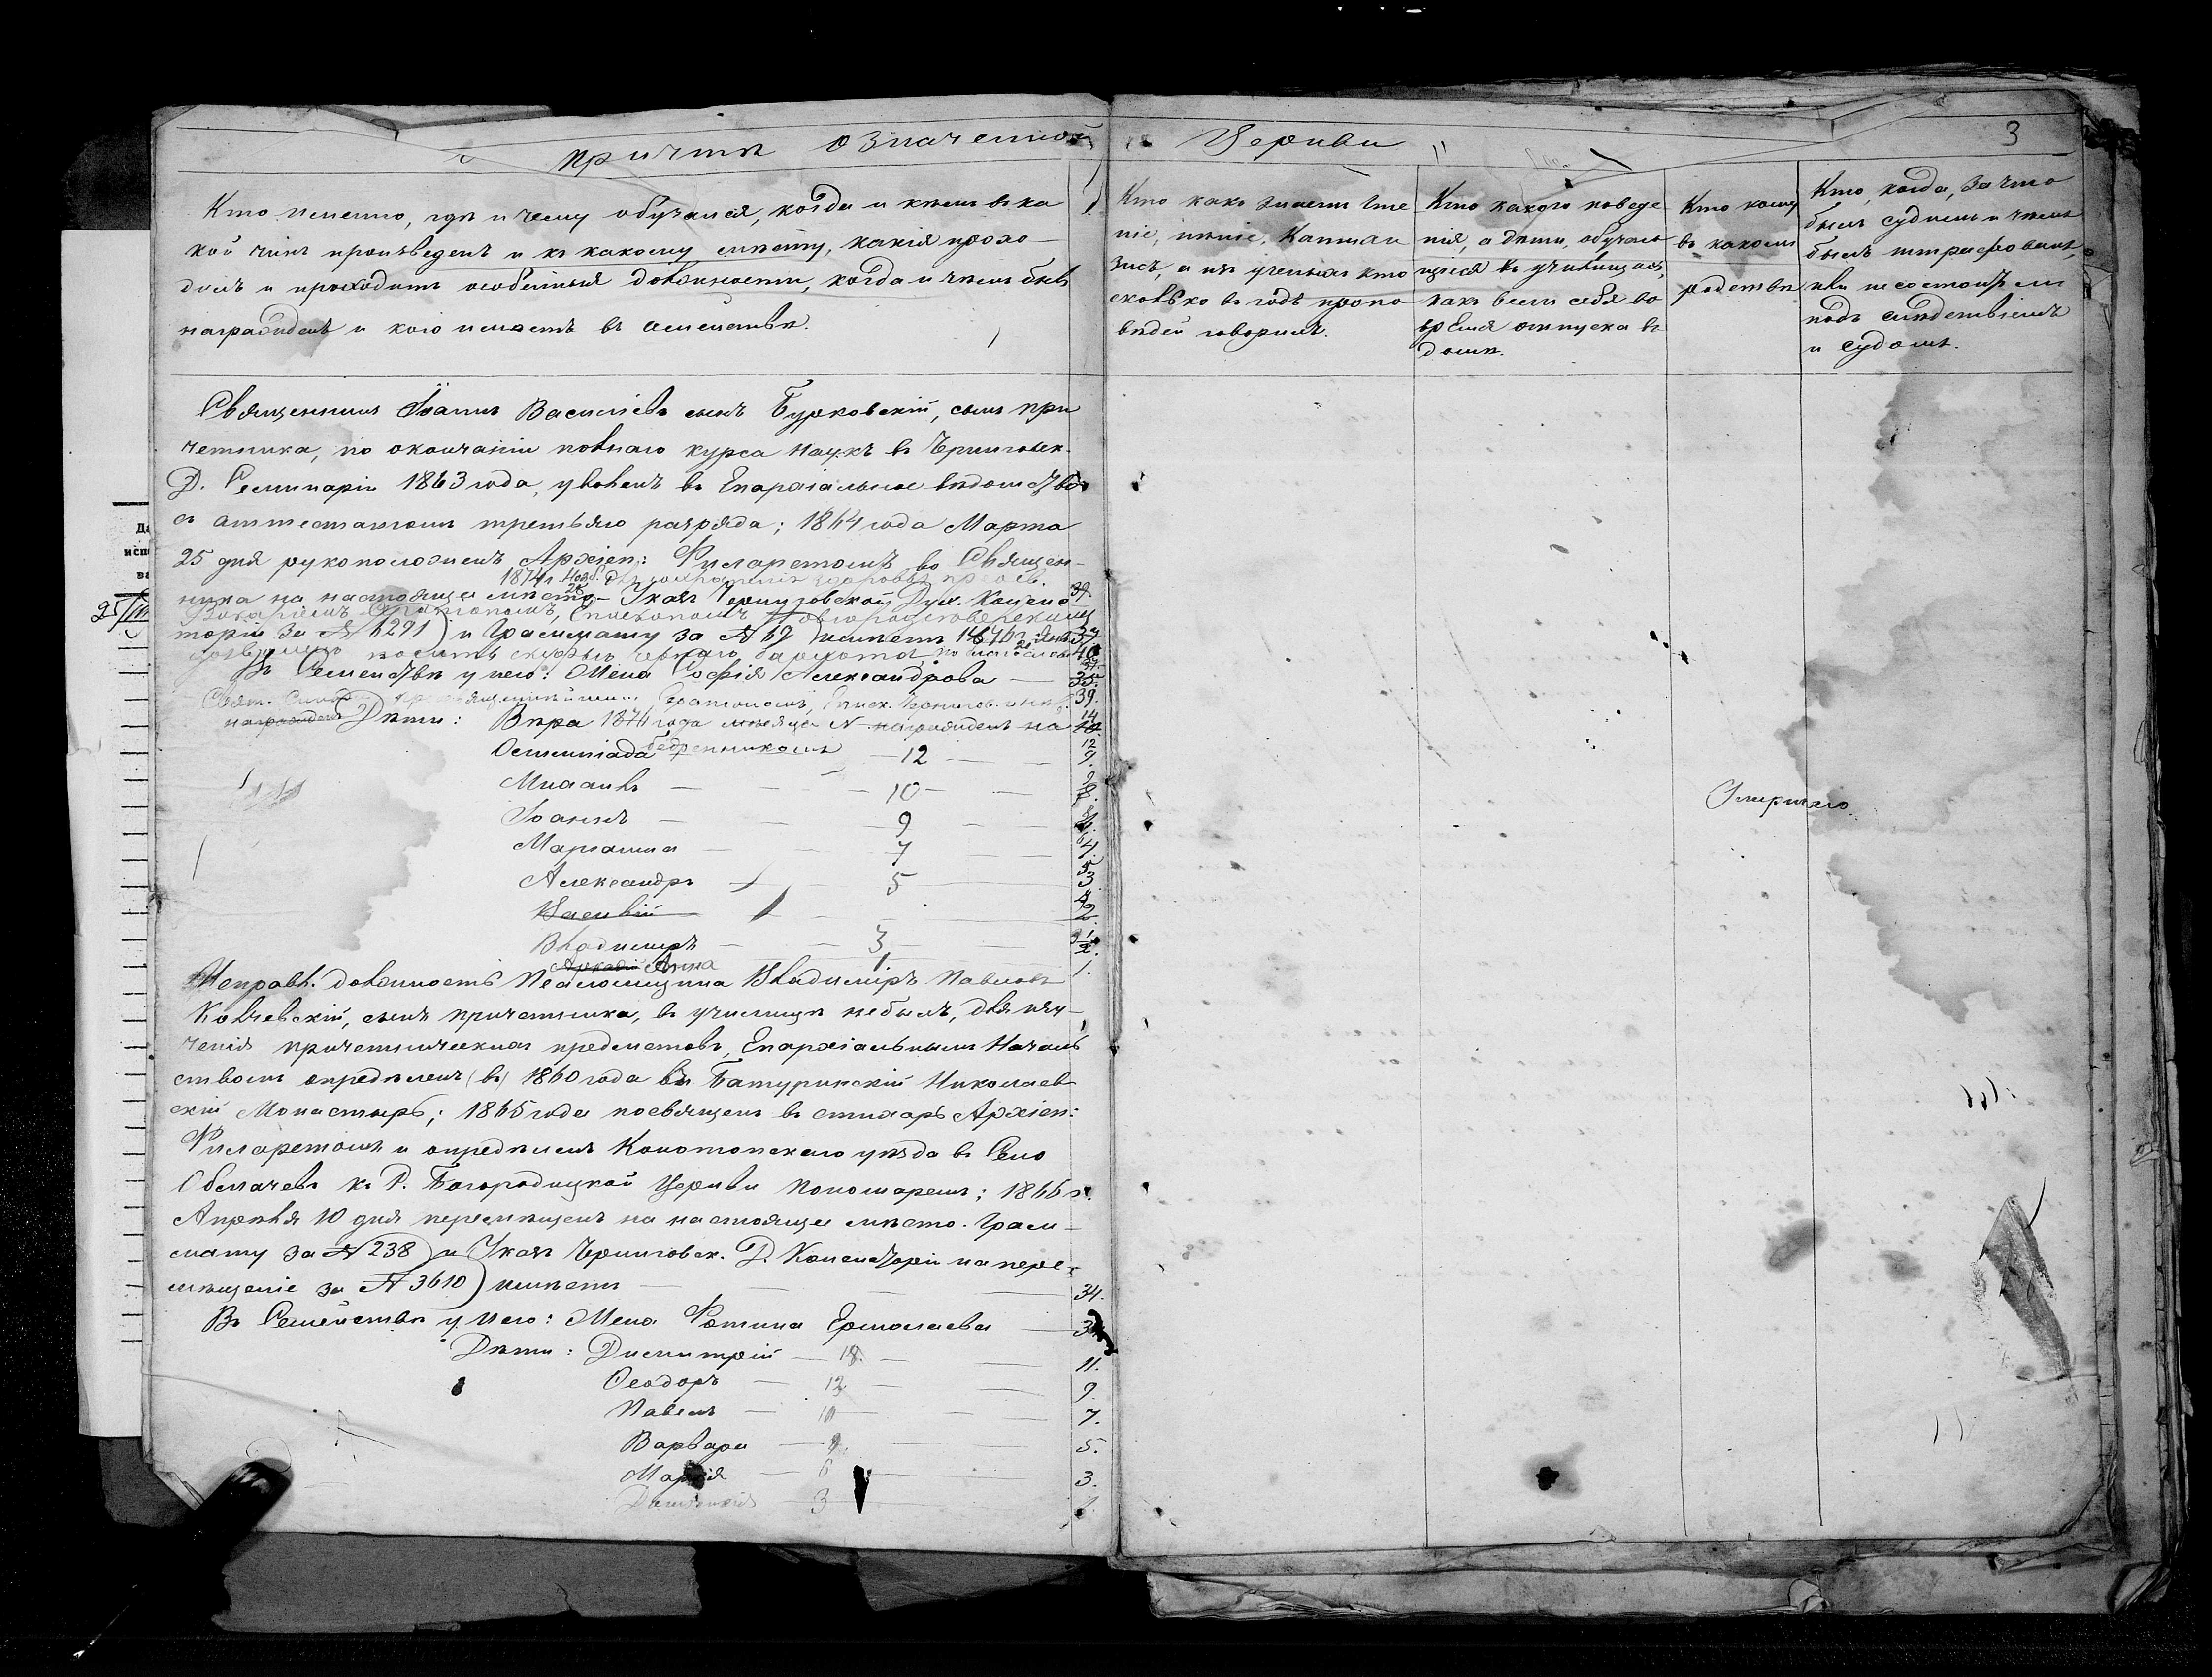 причтѣ означенной Церкви
3
Кто именно, гдѣ и чему обучался, когда и кѣмъ въ ка
кой чинъ произведенъ и къ какому мѣсту, какія прохо-
дилъ и проходитъ особенныя должности, когда и чѣмъ былъ
награжденъ и кого имѣетъ въ семействѣ.
Кто какъ знаетъ чте
ніе, пѣніе, Катихи
зисъ, и изъ ученыхъ кто
сколько въ годъ пропо
вѣдей говорилъ.
Кто какого поведе
нія, а дѣти, обучаю
щіяся въ училищахъ,
какъ вели себя во
время отпуска въ
домъ.
Кто кому
въ какомъ
родствѣ
Кто, когда, за что
былъ судимъ и чѣмъ
былъ штрафованъ,
или не состоитъ ли
подъ слѣдствіемъ
и судомъ.
Священникъ Іоаннъ Василіевъ сынъ Бурковскій, сынъ при
четника, по окончаніи полнаго курса наукъ въ Черниговск.
Д. Семинаріи 1863 года, уволенъ въ Епархіальное вѣдомство
съ аттестатомъ третьяго разряда; 1864 года Марта
25 дня рукоположенъ Архіеп: Филаретомъ во Священ-
1874 г. Нояб. 25
ника на настоящее мѣсто. Указъ Черниговской Дух. Консис 39.
Серапіономъ, Епископомъ
торіи за № 6291) и Грамматту за № 69) имѣетъ 1876 г. 37
носить скуфью 40
Въ Семействѣ у него: Жена Софія Александрова — 35.
Серапіономъ, Епис. Чернигов. 39.
награжденъ Дѣти: Вѣра 1876 года мѣсяца N награжденъ на 14
набедренникомъ
Олимпіада — 12 — 12 9.
Михаилъ — 10 — 8.
Іоаннъ — 9
Маріанна — 7 — 4.
Александръ — 5 — 5 3
Василій — 4 2.
Владиміръ — 3 — 1/2.
Аркадій Анна 1 1.
Умершаго.
Исправл. должность Псаломщика Владиміръ Павловъ
Колчевскій, сынъ причетника, въ училищѣ небылъ, для изу-
ченія причетническихъ предметовъ, Епархіальнымъ Началь
ствомъ опредѣленъ (въ) 1860 года въ Батуринскій Николаев
скій Монастырь; 1865 года посвященъ въ стихарь Архіеп:
Филаретомъ и опредѣленъ Конотопскаго уѣзда въ Село
Обмачевъ къ Р. Богородицкой Церкви Пономаремъ; 1866 г.
Апрѣля 10 дня перемѣщенъ на настоящее мѣсто. Грам-
мату за № 238) и Указъ Черниговск. Д. Консисторіи на пере-
мѣщеніе за № 3610) имѣетъ — 34.
Въ Семействѣ у него: Жена Фотина Ермолаева —
Дѣти: Димитрій — 18. — 11.
Ѳеодоръ — 12 — 9.
Павелъ — 10 — 7.
Варвара — 9. — 5.
Марія — 6 — 3.
3